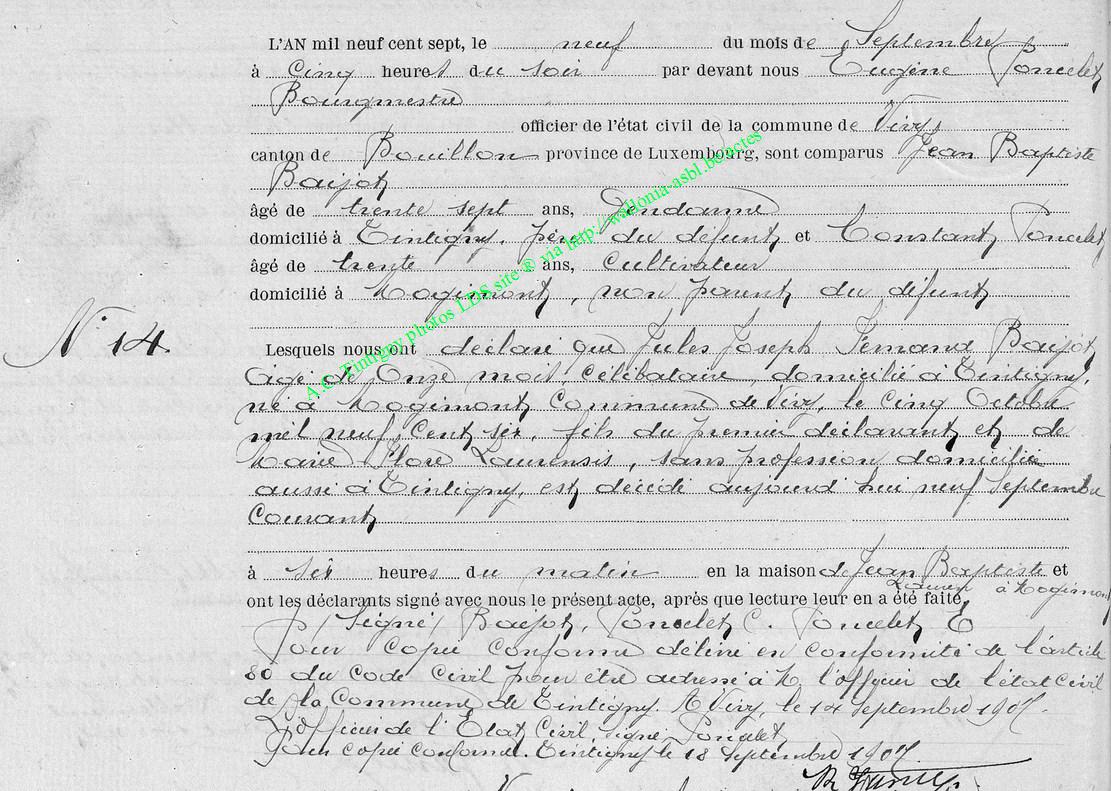 L'AN mil neuf cent sept, le neuf du mois de Septembre
à Cinq heures du soir par devant nous Eugène Poncelet
Bourgmestre
officier de l'état civil de la commune de Vivy,
canton de Bouillon province de Luxembourg, sont comparus Jean Baptiste
Baijot
âgé de trente sept ans, Gendarme
domicilié à Tintigny, père du défunt, et Constant Poncelet
âgé de trente ans, Cultivateur
domicilié à Mogimont, non parent du défunt
N° 14
Lesquels nous ont déclaré que Jules Joseph Fernand Baijot,
âgé de Onze mois Célibataire domicilié à Tintigny,
né à Mogimont Commune de Vivy, le Cinq Octobre
mil neuf Cent six, fils du premier déclarant et de
Marie Flore Laurensis, sans profession domiciliée
aussi à Tintigny, est décédé aujourd'hui neuf Septembre
Courant
à six heures du matin en la maison de Jean Baptiste et
à Mogimont
ont les déclarants signé avec nous le présent acte, après que lecture leur en a été faite.
(Signé) Baijot, Poncelet C. Poncelet E
Pour Copie Conforme délivré en conformité de l'article
80 du Code Civil pour être adressé à M l'officier de l'état civil
de la Commune de Tintigny. A Vivy, le 14 Septembre 1907.
L'officier de l'Etat Civil, signé Poncelet
Pour copie conforme. Tintigny le 18 Septembre 1907.
A.C. Tintigny photos LDS site ® via http://wallonia-asbl.be/actes